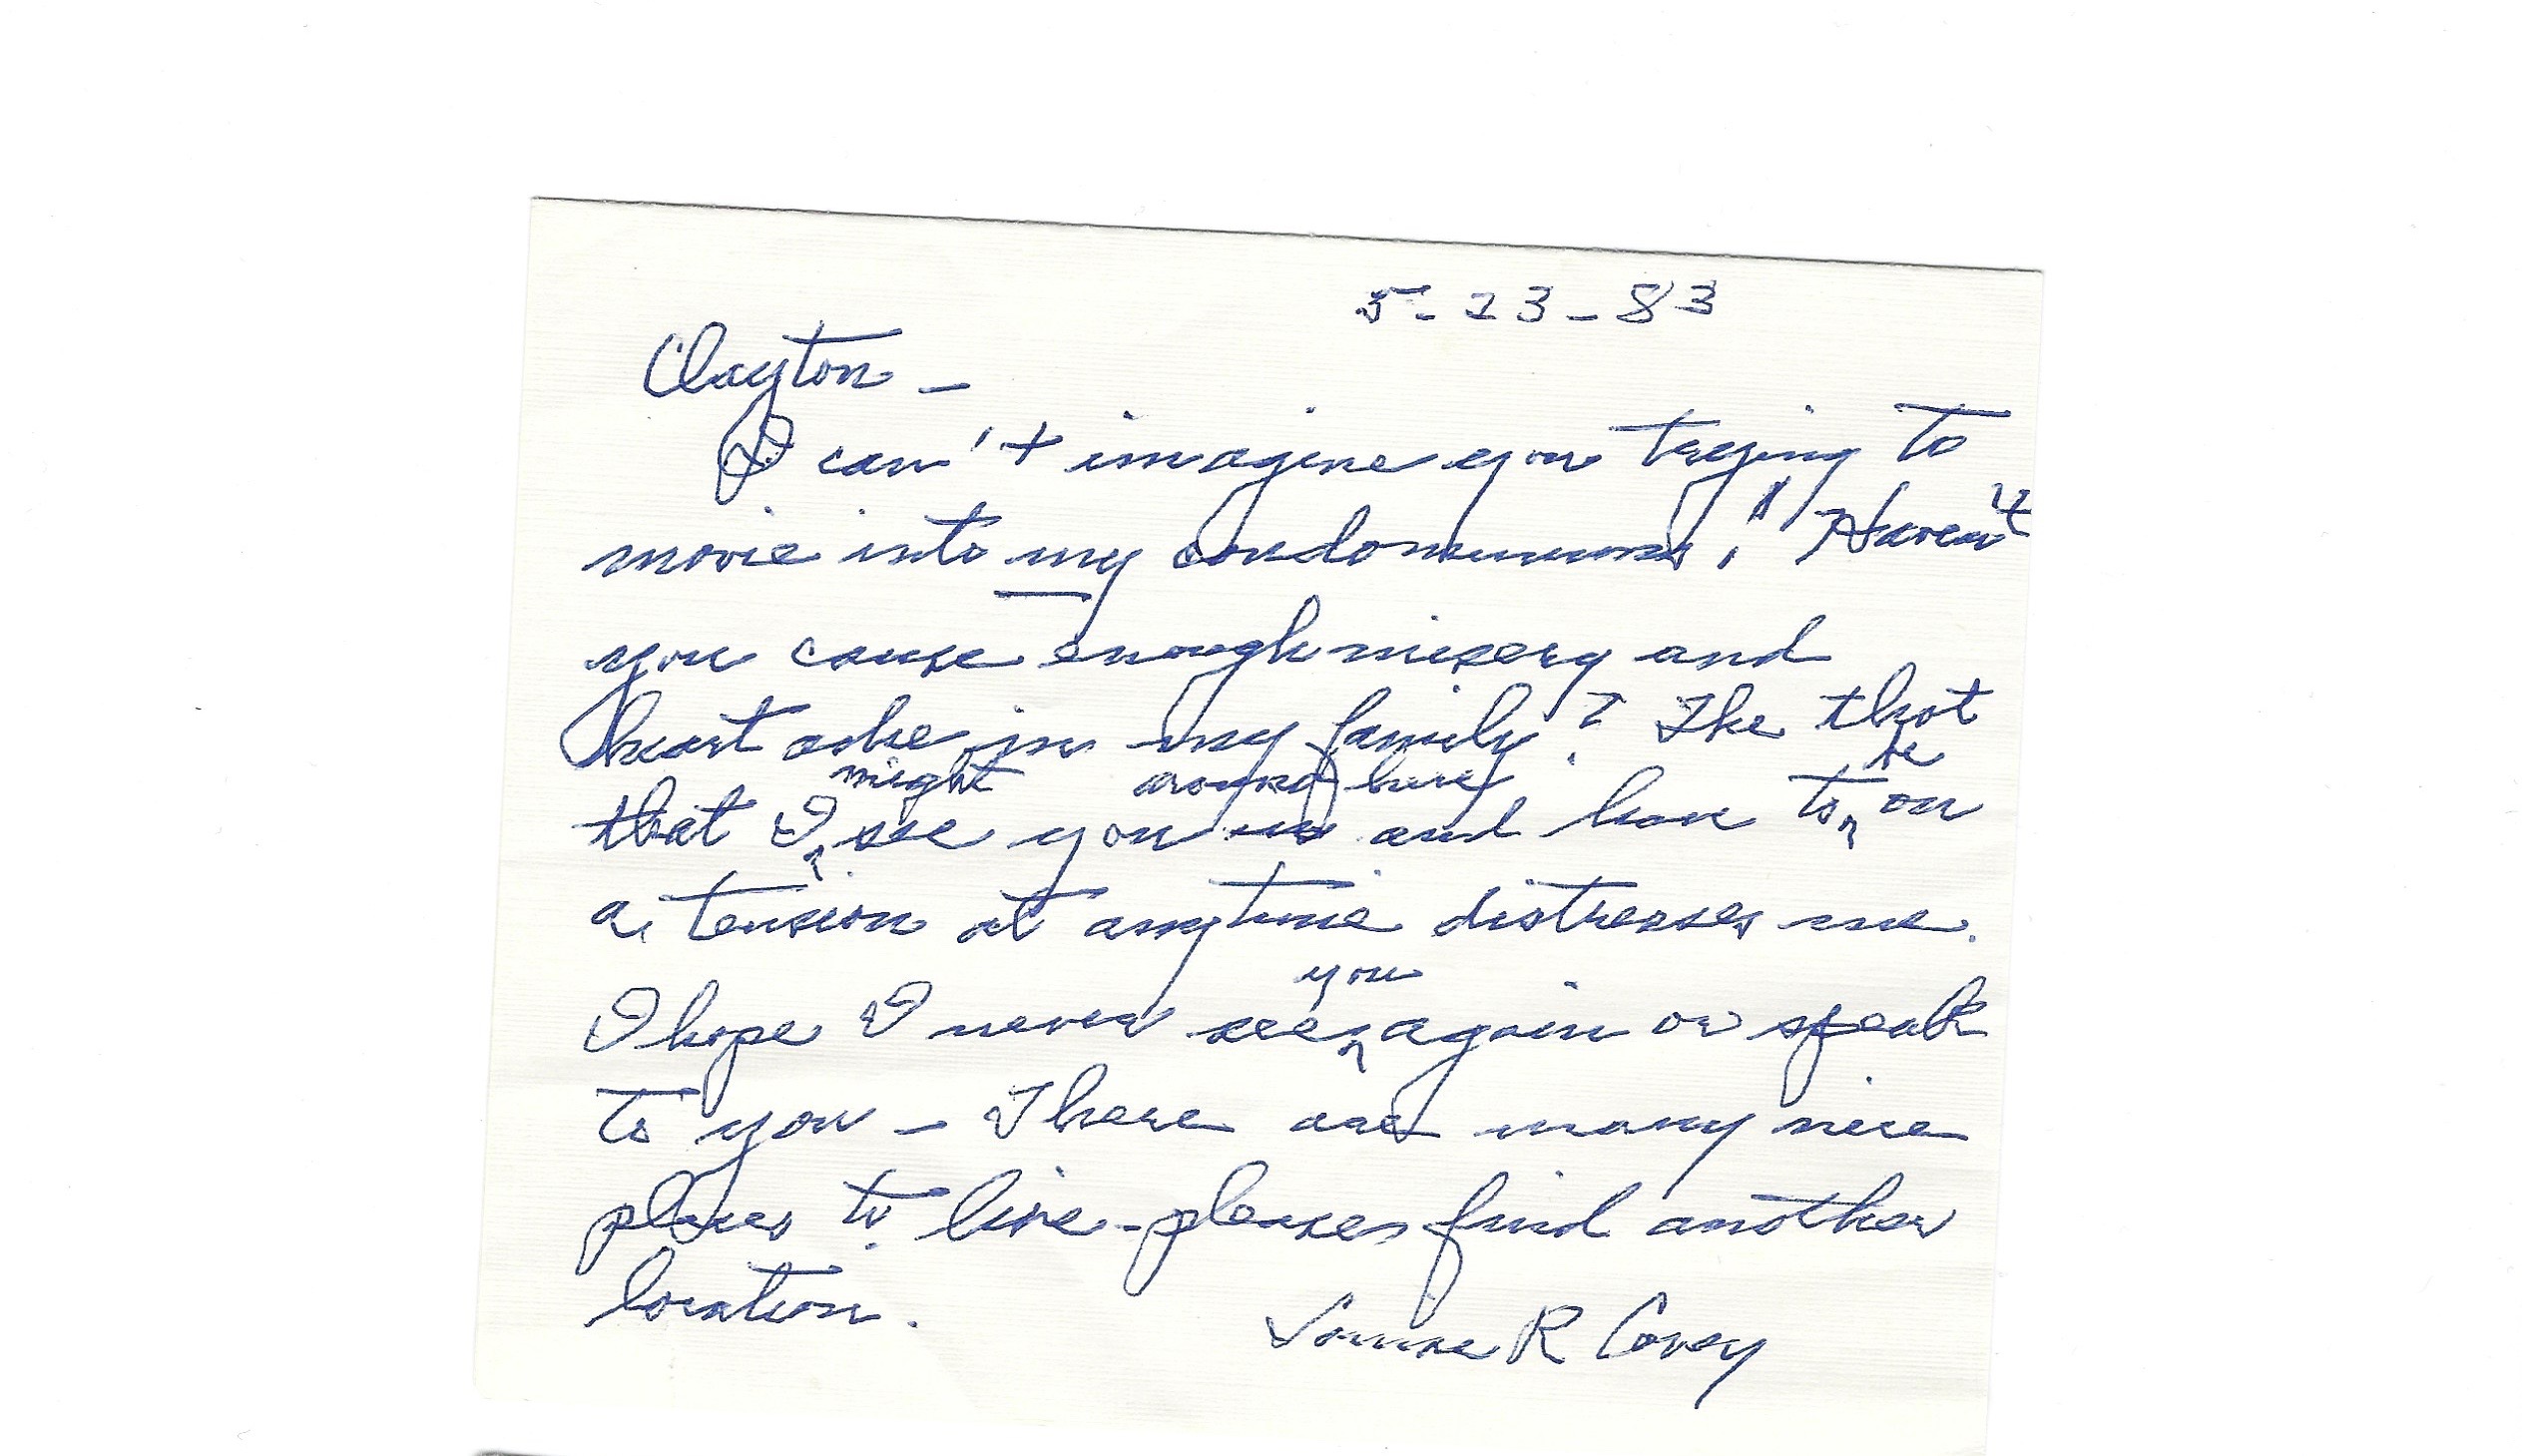 5-23-83
Clayton -
I can't imagine you trying to
move into my condominium! Haven't
you cause enough misery and
heart ache in my family? The thot
that I might see you around here and have to be on
a tension at anytime distresses me.
I hope I never see you again or speak
to you - There are many nice
places to live - please find another
location.
Louise R Covey